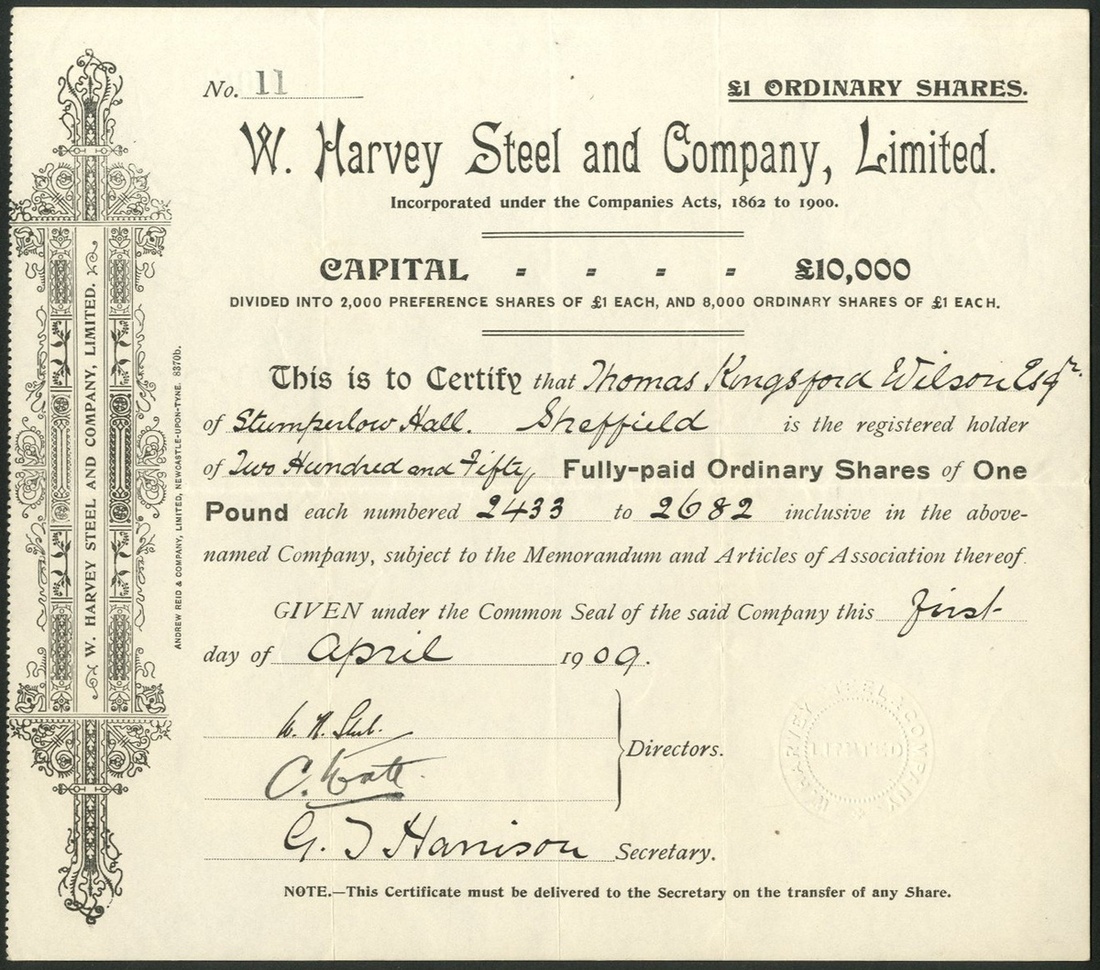 No. 11
£1 ORDINARY SHARES.
W. Harvey Steel and Company, Limited.
Incorporated under the Companies Acts, 1862 to 1900.
CAPITAL - - - - £10,000
DIVIDED INTO 2,000 PREFERENCE SHARES OF £1 EACH, AND 8,000 ORDINARY SHARES OF £1 EACH.
This is to Certify that Thomas Kingsford Wilson Esqr.
of Stumperlow Hall. Sheffield is the registered holder
of Two Hundred and Fifty Fully-paid Ordinary Shares of One
Pound each numbered 2433 to 2682 inclusive in the above-
named Company, subject to the Memorandum and Articles of Association thereof.
GIVEN under the Common Seal of the said Company this first
day of April 1909.
Directors.
G. J Harrison Secretary.
NOTE.—This Certificate must be delivered to the Secretary on the transfer of any Share.
W. HARVEY STEEL AND COMPANY, LIMITED.
ANDREW REID & COMPANY, LIMITED, NEWCASTLE-UPON-TYNE. 8370b.
W. HARVEY STEEL & COMPANY
LIMITED